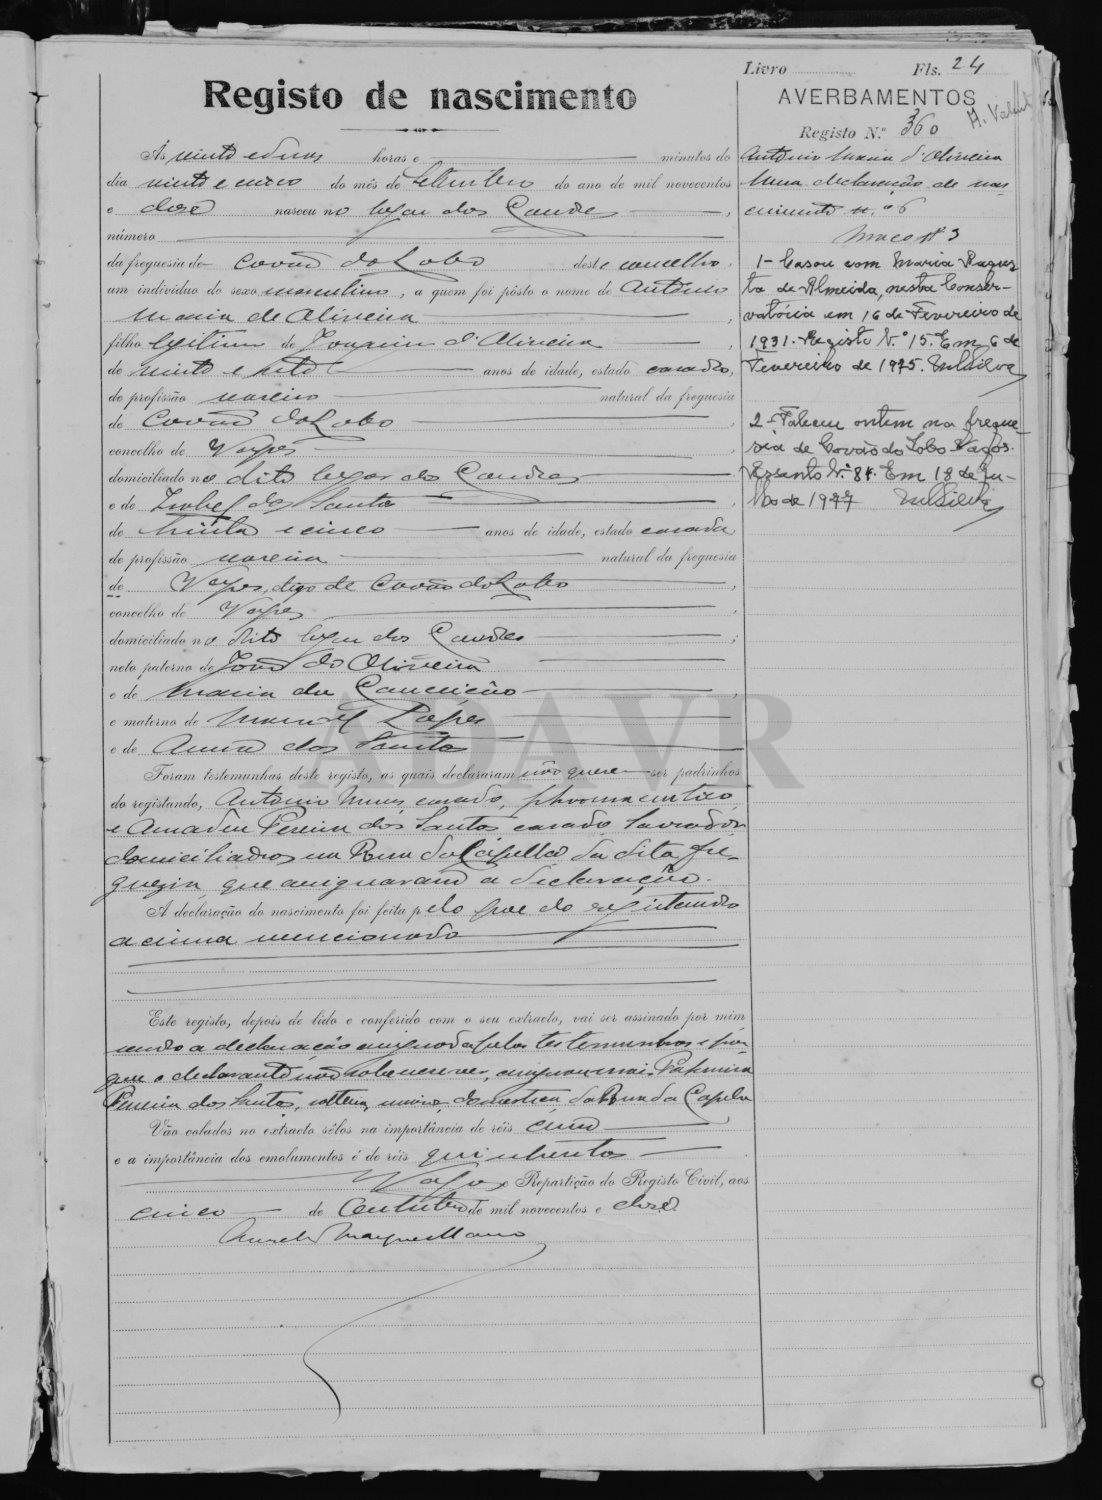 Livro Fls. 24
Registo de nascimento
AVERBAMENTOS
Registo N.º 360
Ás vinte e duas horas e minutos do
dia vinte e cinco do mês de Setembro do ano de mil novecentos
e doze nasceu no logar dos
número
da freguesia de Covão do Lobo deste concelho,
um indivíduo do sexo masculino, a quem foi pôsto o nome de António
Maria de Oliveira
filho legitimo de Joaquim d'Oliveira
de vinte e sete anos de idade, estado casado,
de profissão natural da freguesia
de Covão do Lobo
concelho de Vagos
domiciliado no dito logar dos
e de Izabel dos Santos
de trinta e cinco anos de idade, estado casada
de profissão natural da freguesia
de Vagos, digo de Covão do Lobo
concelho de Vagos
domiciliada no dito logar dos
neto paterno de João de Oliveira
e de Maria da Conceição
e materno de Manuel Lopes
e de Anna dos Santos
Foram testemunhas deste registo, as quais declararam não querer ser padrinhos
do registando, Antonio casado, pharmaceutico
e Amadeu Pereira dos Santos casado lavrador
domiciliados na Rua da Capella da dita fre-
guezia, que assignaram a declaração.
A declaração do nascimento foi feita pelo pae do registando
acima mencionado
Este registo, depois de lido e conferido com o seu extracto, vai ser assinado por mim
sendo a declaração assignada pelas testemunhas e por
que o declarante não sabe escrever, Palmira
Pereira dos Santos, solteira, maior, domestica da Rua da Capella
Vão colados no extracto sêlos na importância de réis cento
e a importância dos emolumentos é de réis quinhentos
Vagos e Repartição do Registo Civil, aos
cinco de Outubro de mil novecentos e doze.
Antonio Maria d'Oliveira
declaração de nas-
cimento n.º 6
Maço nº 3
1- Casou com Maria
de Almeida, nesta Conser-
vatória em 16 de Fevereiro de
1931. Registo N.º 15. Em 6 de
Fevereiro de 1975. MSilva
2- Faleceu ontem na fregue-
sia de Covão do Lobo Vagos.
Assento N.º 84. Em 18 de Ju-
lho de 1977 MSilva
ADAVR